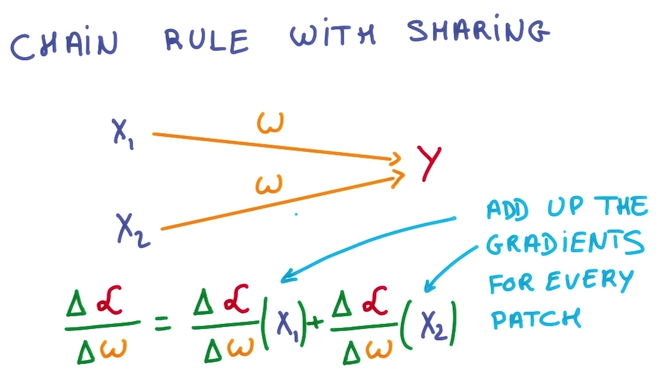 CHAIN RULE WITH SHARING
X₁ ω
Y
X₂ ω
ADD UP THE
GRADIENTS
FOR EVERY
PATCH
Δℒ/Δω = Δℒ/Δω (X₁) + Δℒ/Δω (X₂)